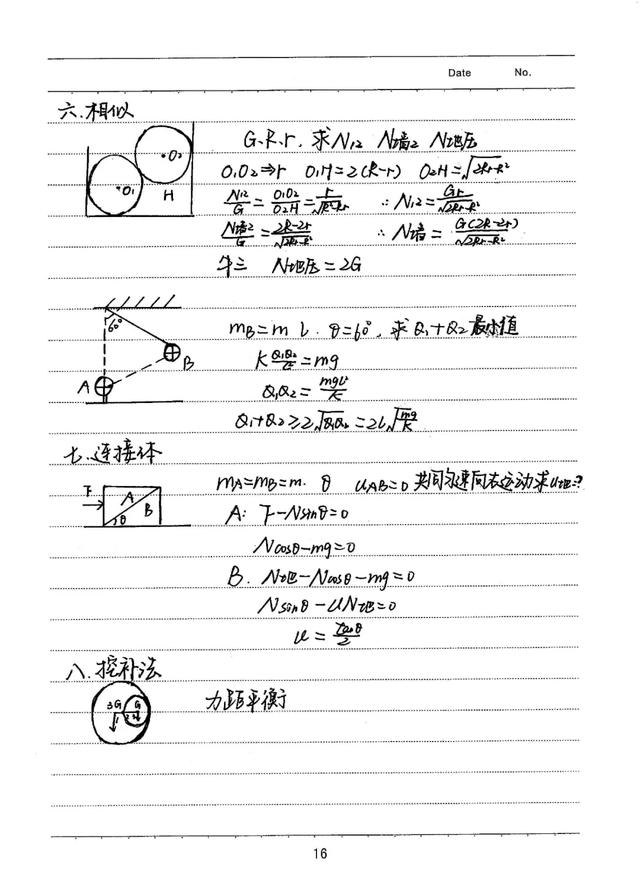 Date No.
六.相似
G.R.r. 求N₁₂ N墙₂ N地压
O₂
O₁
H
O₁O₂⇒r O₁H=2(R-r) O₂H=√2Rr-R²
N₁₂/G = O₁O₂/O₂H = ∴N₁₂= Gr/√2Rr-R²
N墙₂/G = 2R-2r/√2Rr-R² ∴N墙= G(2R-2r)/√2Rr-R²
牛三 N地压=2G
60°
A
B
mB=m L. θ=60°, 求Q₁+Q₂最小值
K Q₁Q₂/L²=mg
Q₁Q₂= mgL²/K
Q₁+Q₂≥2√Q₁Q₂=2L√mg/K
七.连接体
F
A
B
θ
mA=mB=m. θ uAB=0 共同匀速向右运动求u地?
A: F-Nsinθ=0
Ncosθ-mg=0
B. N地-Ncosθ-mg=0
Nsinθ-uN地=0
u= tanθ/2
八.挖补法
3G
G
力距平衡
16